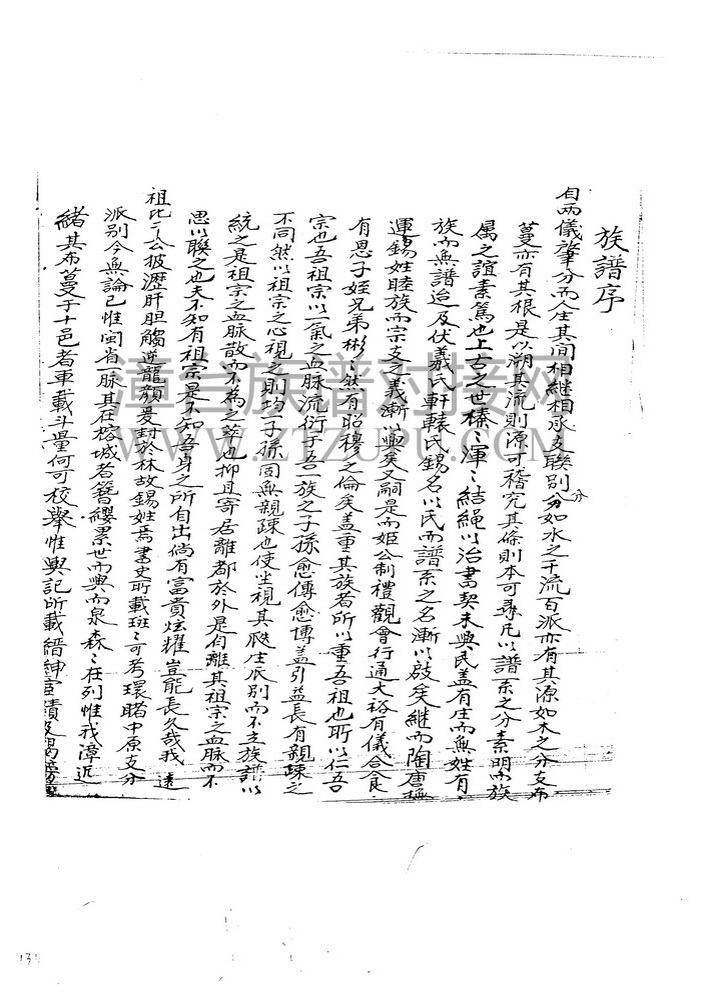 族譜序
自兩儀肇分而人生其间相継相承支聯别分如水之千流百派亦有其源如木之分支布
蔓亦有其根是以溯其流則源可稽究其條則本可尋凡以譜系之分素明而族
属之誼素篤也上古之世榛〻渾〻結繩以治書契未興民盖有生而無姓有
族而無譜迨及伏羲氏軒轅氏錫名以氏而譜系之名漸以啟矣継而陶唐
運錫姓睦族而宗支之義漸以興矣又嗣是而姬公制禮觀會行通大祫有儀合食
有恩子姪兄弟彬〻然有昭穆之倫矣盖重其族者所以重吾祖也所以仁吾
宗也吾祖宗以一氣之血脉流衍于吾一族之子孫愈傳愈博盖引益長有親疎之
不同然以祖宗之心視之則均一子孫固無親疎也使坐視其瓞庄派别而不立族譜以
統之是祖宗之血脉散而不為之萃也抑且寄居離都於外是自離其祖宗之血脉而不
思以聯之也夫不知有祖宗是不知吾身之所自出倘有富貴炫耀豈能長久哉我遠
祖比干公披瀝肝胆觸逆龍顏爰封於林故錫姓焉書史所載班〻可考環睹中原支分
派别今無論已惟闽省一脉其在榕城者簪纓累世而興而泉森〻在列惟我漳近
緒其布蔓于十邑者車載斗量何可校舉惟輿記所載縉紳宦績及
漳台族谱对接网
WWW.ZTZUPU.COM
13